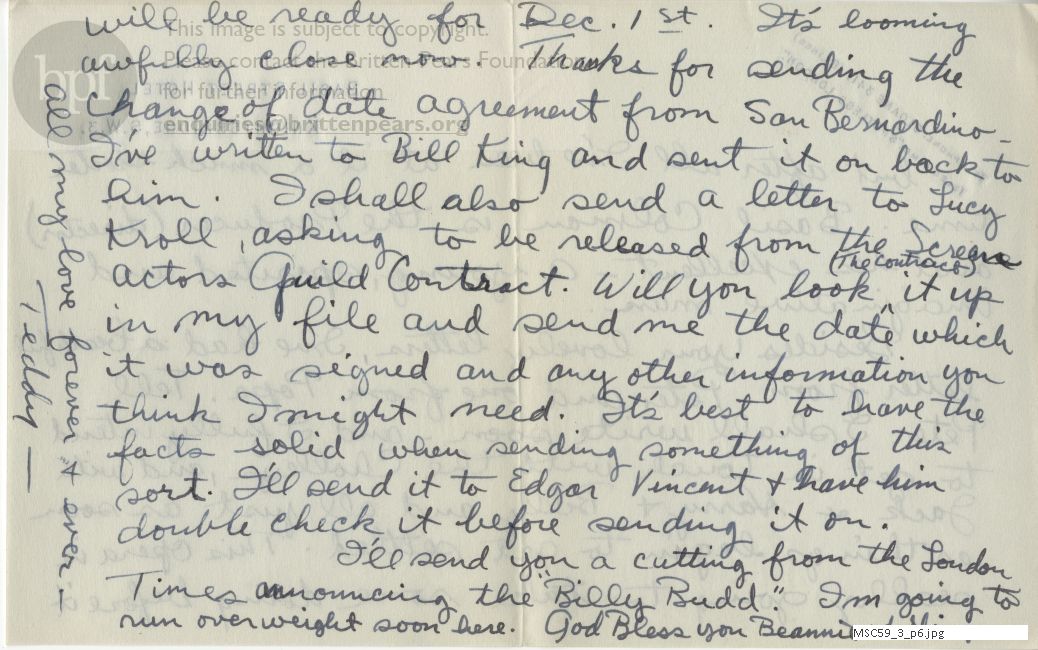 will be ready for Dec. 1st. It's looming
awfully close now. Thanks for sending the
change of date agreement from San Bernardino -
I've written to Bill King and sent it on back to
him. I shall also send a letter to Lucy
Kroll, asking to be released from the Screen
(The contract)
Actors Guild Contract. Will you look it up
in my file and send me the date which
it was signed and any other information you
think I might need. It's best to have the
facts solid when sending something of this
sort. I'll send it to Edgar Vincent + have him
double check it before sending it on.
I'll send you a cutting from the London
Times announcing the "Billy Budd". I'm going to
run overweight soon here. God Bless you
all my love forever + ever -
Teddy —
This image is subject to copyright.
Please contact the Britten-Pears Foundation
for further information
enquiries@brittenpears.org
bpf
MSC59_3_p6.jpg